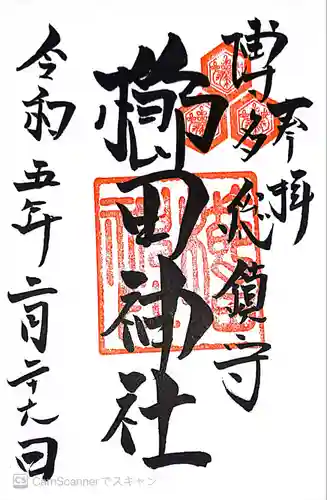 奉拝
博多総鎮守
櫛田神社
令和五年二月二十日
CS CamScannerでスキャン